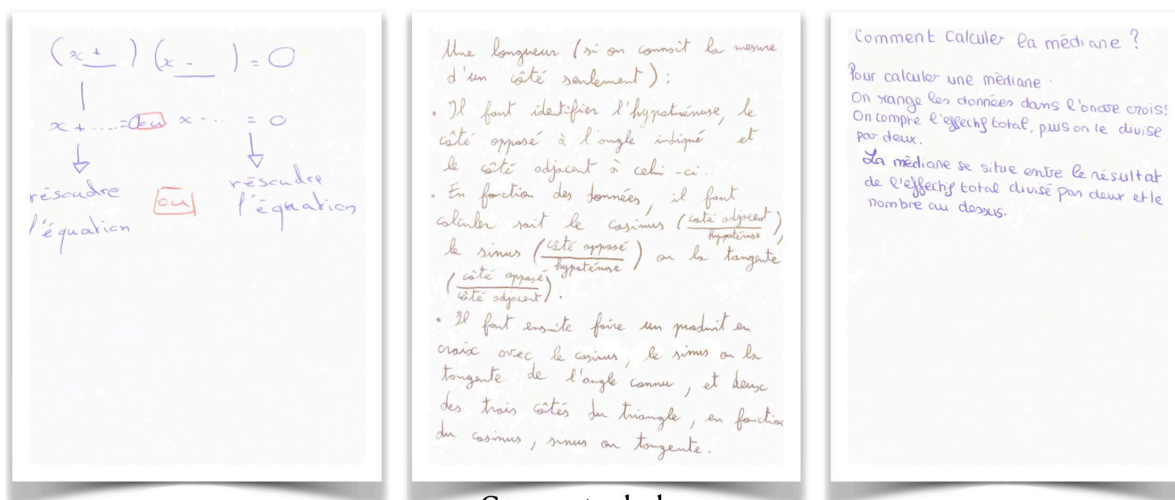 (x + __) (x - __) = 0
x + .... = 0 ou x - ... = 0
résoudre
l'équation
ou
résoudre
l'équation
Une longueur (si on connait la mesure
d'un côté seulement) :
• Il faut identifier l'hypoténuse, le
côté opposé à l'angle indiqué et
le côté adjacent à celui-ci.
• En fonction des données, il faut
calculer soit le cosinus (côté adjacent / hypoténuse),
le sinus (côté opposé / hypoténuse) ou la tangente
(côté opposé / côté adjacent).
• Il faut ensuite faire un produit en
croix avec le cosinus, le sinus ou la
tangente de l'angle connu, et deux
des trois côtés du triangle, en fonction
du cosinus, sinus ou tangente.
Comment calculer la médiane ?
Pour calculer une médiane.
On range les données dans l'ordre crois:
On compte l'effectif total, puis on le divise
par deux.
La médiane se situe entre le résultat
de l'effectif total divisé par deux et le
nombre au dessus.